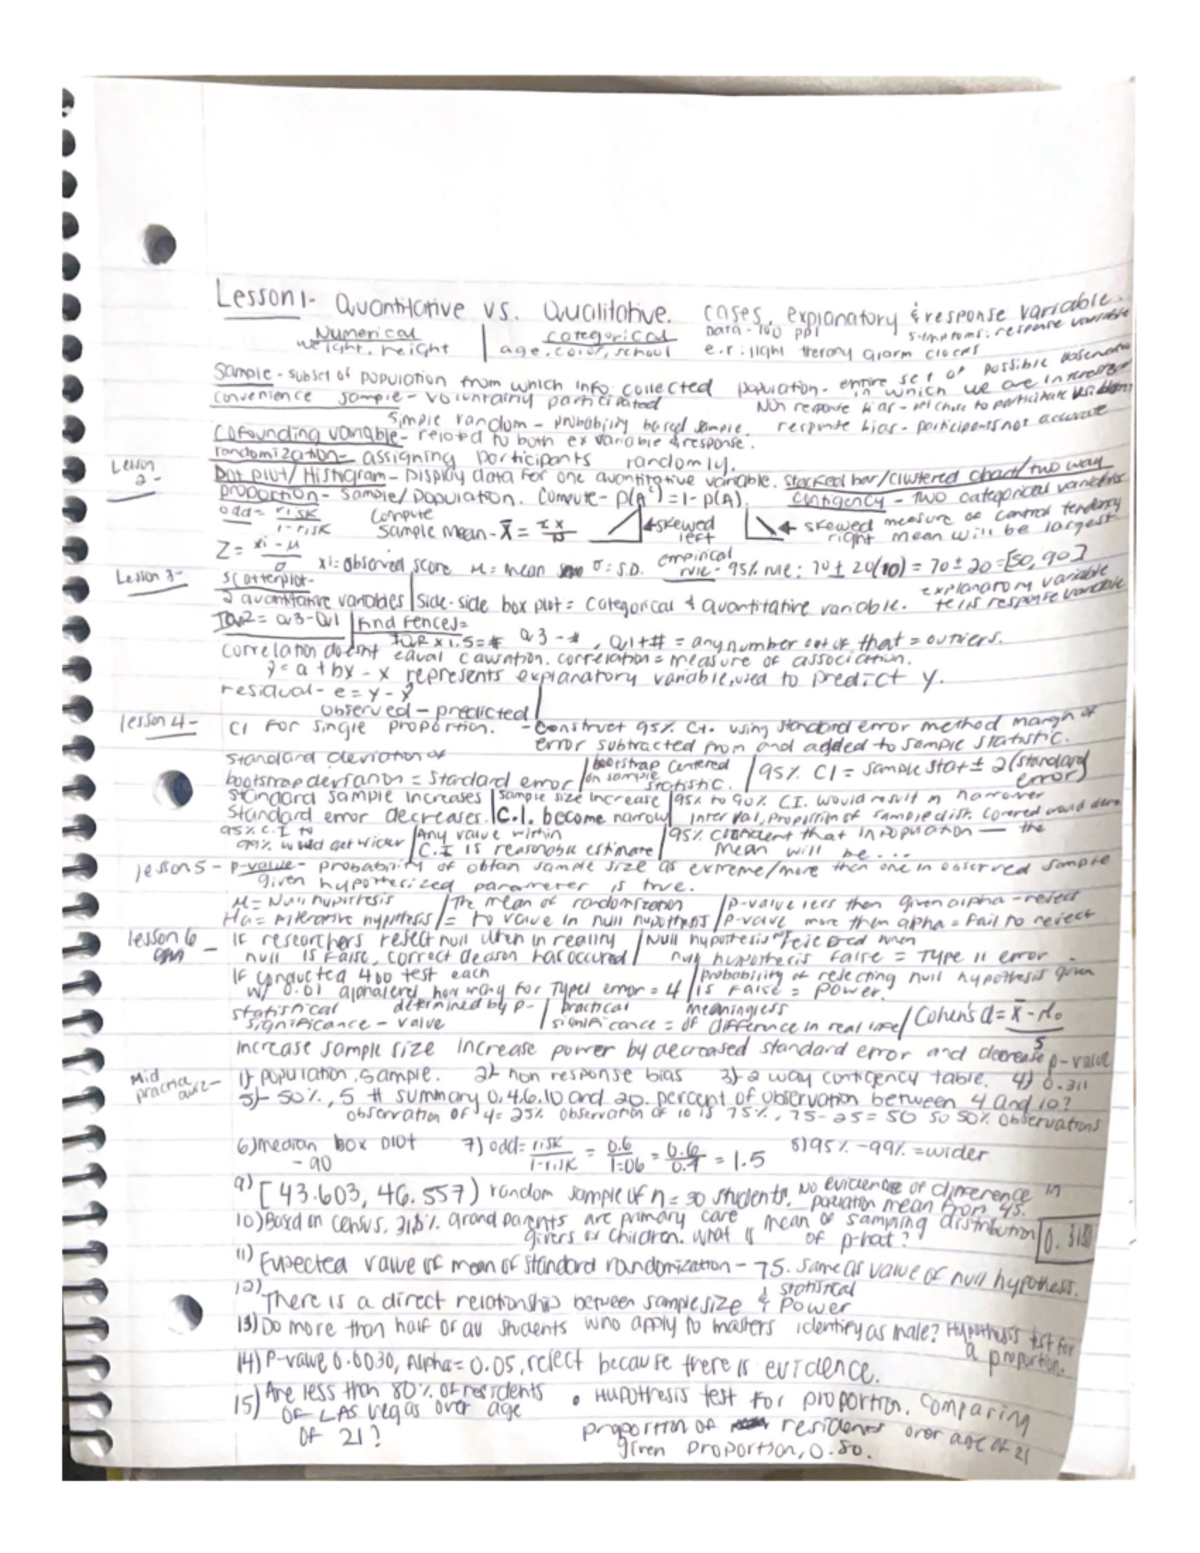 Lesson 1- Quantitative vs. Qualitative. cases, explanatory & response variable.
Numerical | categorical Data - 100 ppl symptoms: response variable
weight, height | age, color, school e.x: light therapy alarm clocks
Sample - subset of population from which info collected population - entire set of possible observation in which we are interested
convenience sample - voluntarily participated Non response bias - ppl chose to participate
Simple random - probability based sample. response bias - participants not accurate
Cofounding variable - relatd to both ex variable & response.
randomization - assigning participants randomly.
Lesson 2-
Dot plot/Histogram - Display data for one quantitative variable. Stacked bar/clustered chart/two way
proportion - sample/population. Compute - P(A^c) = 1 - P(A). contigency - two categorical variables
odd = risk / 1-risk Compute Sample mean - x̄ = Σx/n ←skewed left ← skewed right measure of central tendency mean will be largest
Z = xi - μ / σ xi = observed score μ = mean σ = S.D. empirical rule - 95% rule: 70 ± 20(10) = 70 ± 20 = [50, 90]
Lesson 3-
scatterplot- explanatory variable
2 quantitative variables | side-side box plot = categorical & quantitative variable. tells response variable
IQR = Q3-Q1 | find fences =
IQR x 1.5 = # Q3 - #, Q1 + # = any number out of that = outliers.
Correlation doesnt equal causation. correlation = measure of association.
ŷ = a + bx - x represents explanatory variable, used to predict y.
residual - e = y - ŷ
observed - predicted
lesson 4-
CI for single proportion. - construct 95% CI. using standard error method margin of
error subtracted from and added to sample statistic.
standard deviation of
bootstrap = standard error | bootstrap centered on sample statistic. | 95% CI = sample stat ± 2(standard error)
standard sample increases | sample size increase | 95% to 90% C.I. would result in narrower
standard error decreases. | C.I. become narrow | interval, proportion of sample dist. covered would
95% C.I to | Any value within | 95% confident that in population — the
99% would get wider | C.I is reasonable estimate | mean will be...
lesson 5 - p-value - probability of obtain sample size as extreme/more than one in observed sample
given hypothesized parameter is true.
μ = Null hypothesis | The mean of randomization | p-value less then given alpha - reject
Ha = Alterative hypothesis | = to value in null hypothesis | p-value more then alpha = fail to reject
lesson 6
If researchers reject null when in reality | Null hypothesis when
null is false, correct decison has occured | null hypothesis false = Type II error.
If conducted 400 test each | probability of rejecting null hypothesis given
w/ 0.01 alpha level how many for Type I error = 4 | is false = power.
statistical determined by p- | practical meaningless
significance - value | significance = of difference in real life | Cohen's d = x̄ - μ0 / s
Increase sample size increase power by decreased standard error and decrease p-value
Mid practice
1) population, sample. 2) non response bias 3) 2 way contigency table. 4) 0.311
5) 50%, 5 # summary 0,4,6,10 and 20. percent of observation between 4 and 10?
observation of 4 = 25% observation of 10 is 75%, 75-25=50 so 50% observations
6) median box plot 7) odd = risk / 1-risk = 0.6 / 1-06 = 0.6 / 0.4 = 1.5 8) 95% - 99% = wider
- 90
9) [43.603, 46.557) random sample of n = 30 students, No evidence of difference in
population mean from 45.
10) Based on census, 31.8% grand parents are primary care mean of sampling distribution
givers of children. What is of p-hat? 0.318
11) Expected value of mean of standard randomization - 75. same as value of null hypothesis.
12) There is a direct relationship between sample size & statistical power
13) Do more than half of all students who apply to masters identify as male? Hypothesis test for
a proportion.
14) P-value 0.0030, Alpha = 0.05, reject because there is evidence.
15) Are less than 80% of residents • Hypothesis test for proportion, comparing
of LAS vegas over age proportion of residents over age of 21
of 21? given proportion, 0.80.